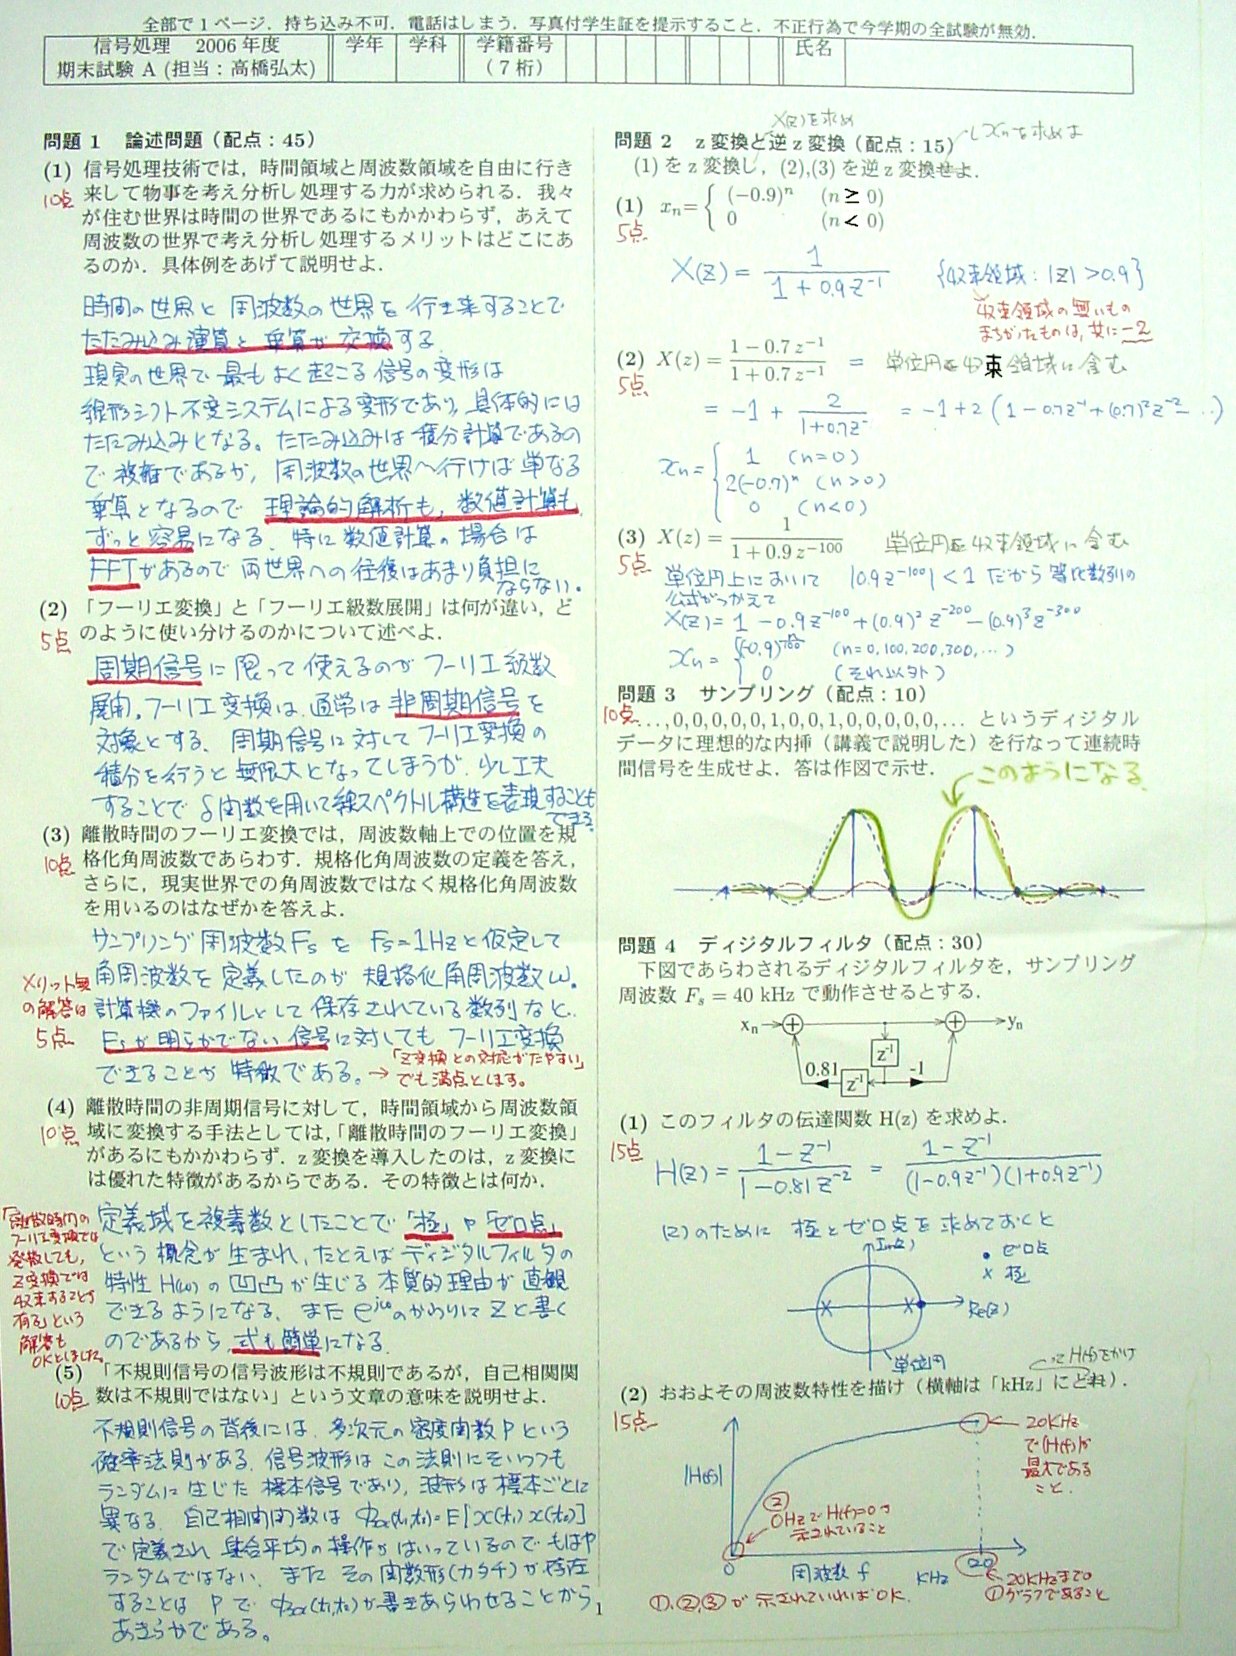 全部で1ページ．持ち込み不可．電話はしまう．写真付学生証を提示すること．不正行為で今学期の全試験が無効．
信号処理　2006年度
期末試験 A (担当：高橋弘太)
学年
学科
学籍番号
(7桁)
氏名
問題1　論述問題（配点：45）
(1) 信号処理技術では，時間領域と周波数領域を自由に行き
10点
来して物事を考え分析し処理する力が求められる．我々
が住む世界は時間の世界であるにもかかわらず，あえて
周波数の世界で考え分析し処理するメリットはどこにあ
るのか．具体例をあげて説明せよ．
時間の世界と周波数の世界を行き来することで
たたみ込み演算と乗算が交換する
現実の世界で最もよく起こる信号の変形は
線形シフト不変システムによる変形であり，具体的には
たたみ込みとなる。たたみ込みは積分計算であるの
で複雑であるが，周波数の世界へ行けば単なる
乗算となるので 理論的解析も，数値計算も
ずっと容易になる．特に数値計算の場合は
FFTがあるので両世界への往復はあまり負担に
ならない。
(2) 「フーリエ変換」と「フーリエ級数展開」は何が違い，ど
5点
のように使い分けるのかについて述べよ．
周期信号に限って使えるのがフーリエ級数
展開。フーリエ変換は，通常は非周期信号を
対象とする．周期信号に対してフーリエ変換の
積分を行うと無限大となってしまうが，少し工夫
することでδ関数を用いて線スペクトル構造を表現することも
できる．
(3) 離散時間のフーリエ変換では，周波数軸上での位置を規
10点
格化角周波数であらわす．規格化角周波数の定義を答え，
さらに，現実世界での角周波数ではなく規格化角周波数
を用いるのはなぜかを答えよ．
サンプリング周波数Fsを Fs=1Hzと仮定して
角周波数を定義したのが規格化角周波数ω。
計算機のファイルとして保存されている数列など，
Fsが明らかでない信号に対してもフーリエ変換
できることが特徴である。
メリット無
の解答は
5点
→「Z変換との対応がたやすい」
でも満点とします。
(4) 離散時間の非周期信号に対して，時間領域から周波数領
10点
域に変換する手法としては，「離散時間のフーリエ変換」
があるにもかかわらず．z変換を導入したのは，z変換に
は優れた特徴があるからである．その特徴とは何か．
定義域を複素数としたことで「極」や「ゼロ点」
という概念が生まれ，たとえばディジタルフィルタの
特性H(ω)の凹凸が生じる本質的理由が直観
できるようになる．また e^{jω}のかわりに Zと書く
のであるから，式も簡単になる．
「離散時間の
フーリエ変換では
発散しても，
Z変換では
収束することが
有る」という
解答も
OKとしました。
(5) 「不規則信号の信号波形は不規則であるが，自己相関関
10点
数は不規則ではない」という文章の意味を説明せよ．
不規則信号の背後には，多次元の密度関数Pという
確率法則がある．信号波形はこの法則にそいつつも
ランダムに生じた標本信号であり，波形は標本ごとに
異なる．自己相関関数は φxx(t₁,t₂)=E[x(t₁)x(t₂)]
で定義され，集合平均の操作がはいっているのでもはや
ランダムではない．また その関数形(カタチ)が存在
することは Pで φxx(t₁,t₂)が書きあらわせることから
あきらかである。
X(z)を求め
しxnを求めよ
問題2　z変換と逆z変換（配点：15）
(1)をz変換し，(2),(3)を逆z変換せよ．
(1) xn= { (−0.9)^n (n ≥ 0)
0 (n < 0)
5点
X(z) = 1 / (1 + 0.9z^{-1}) {収束領域：|z| > 0.9}
収束領域の無いもの
まちがったものは，共に−2
(2) X(z) = (1 − 0.7 z^{-1}) / (1 + 0.7 z^{-1}) = 単位円を収束領域に含む
5点
= −1 + 2 / (1+0.7z^-) = −1+2 (1 − 0.7z^{-1} + (0.7)²z^{-2} − ..)
xn = { 1 (n=0)
2(−0.7)^n (n>0)
0 (n<0)
(3) X(z) = 1 / (1 + 0.9 z^{−100}) 単位円を収束領域に含む
5点
単位円上において |0.9z^{-100}| < 1 だから 等比数列の
公式がつかえて
X(z) = 1 − 0.9z^{-100} + (0.9)² z^{-200} − (0.9)³z^{-300}
xn = { (−0.9)^{n/100} (n=0,100,200,300,…)
0 (それ以外)
問題3　サンプリング（配点：10）
10点
…,0,0,0,0,0,1,0,0,1,0,0,0,0,0,… というディジタル
データに理想的な内挿（講義で説明した）を行なって連続時
間信号を生成せよ．答は作図で示せ．
このようになる．
問題4　ディジタルフィルタ（配点：30）
下図であらわされるディジタルフィルタを，サンプリング
周波数 Fs = 40 kHz で動作させるとする．
xn
yn
z⁻¹
0.81
z⁻¹
-1
(1) このフィルタの伝達関数 H(z) を求めよ．
15点
H(z) = (1 − z^{-1}) / (1 − 0.81z^{-2}) = (1 − z^{-1}) / ((1−0.9z^{-1})(1+0.9z^{-1}))
(2)のために 極とゼロ点を求めておくと
Im(z)
• ゼロ点
× 極
Re(z)
単位円
→H(f)をかけ
(2) おおよその周波数特性を描け（横軸は「kHz」にとれ）．
15点
|H(f)|
20KHz
で|H(f)|が
最大である
こと．
②
0HzでH(f)=0が
示されていること
0
周波数 f
KHz
20
20KHzまでの
①グラフであること
①，②，③が示されていればOK．
1